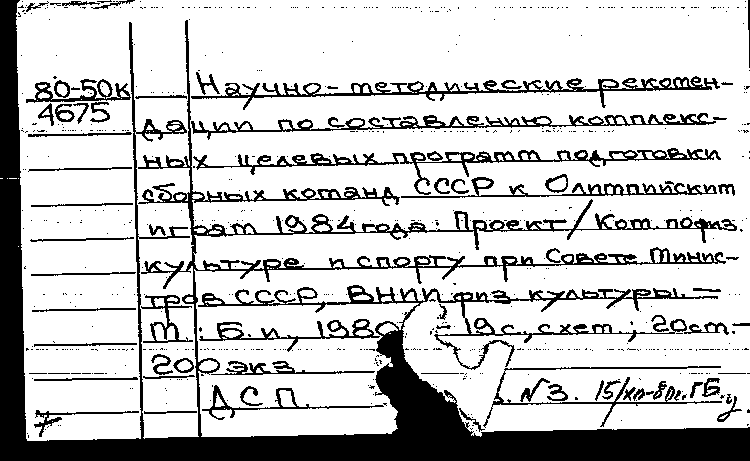 80-50к
4675
Научно-методические рекомен-
дации по составлению комплекс-
ных целевых программ подготовки
сборных команд СССР к Олимпийским
играм 1984 года: Проект/Ком. по физ.
культуре и спорту при Совете Минис-
тров СССР, ВНИИ физ. культуры. —
М.: Б. и., 1980 — 19 с., схем.; 20 см. —
200 экз.
ДСП. №3. 15/XII-80г. ГБ.